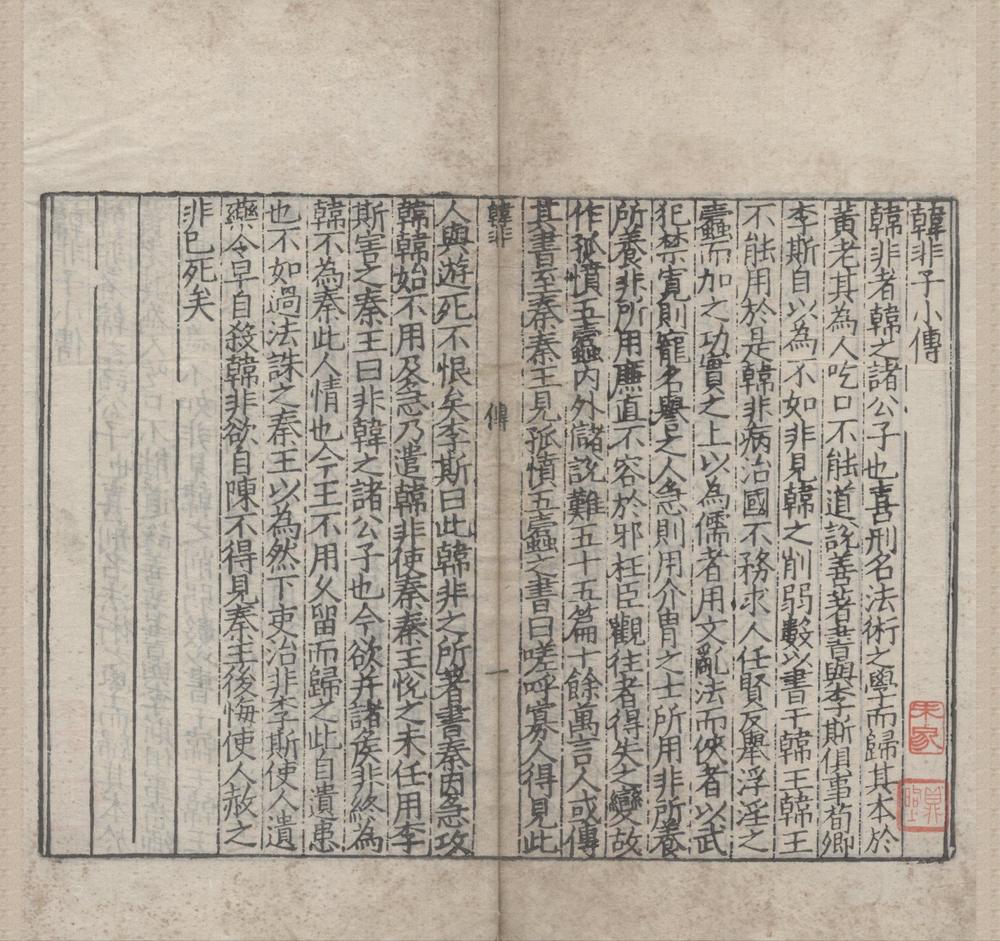 韓非子小傳
韓非者韓之諸公子也喜刑名法術之學而歸其本於
黃老其為人吃口不能道說善著書與李斯俱事荀卿
李斯自以為不如非見韓之削弱數以書干韓王韓王
不能用於是韓非病治國不務求人任賢反舉浮淫之
蠹而加之功實之上以為儒者用文亂法而俠者以武
犯禁寬則寵名譽之人急則用介胄之士所用非所養
所養非所用廉直不容於邪枉臣觀往者得失之變故
作孤憤五蠹內外儲說難五十五篇十餘萬言人或傳
其書至秦秦王見孤憤五蠹之書曰嗟呼寡人得見此
韓非 傳 一
人與遊死不恨矣李斯曰此韓非之所著書秦因急攻
韓韓始不用及急乃遣韓非使秦秦王悅之未任用李
斯害之秦王曰非韓之諸公子也今欲并諸侯非終為
韓不為秦此人情也今王不用久留而歸之此自遺患
也不如過法誅之秦王以為然下吏治非李斯使人遺
藥令早自殺韓非欲自陳不得見秦王後悔使人赦之
非已死矣